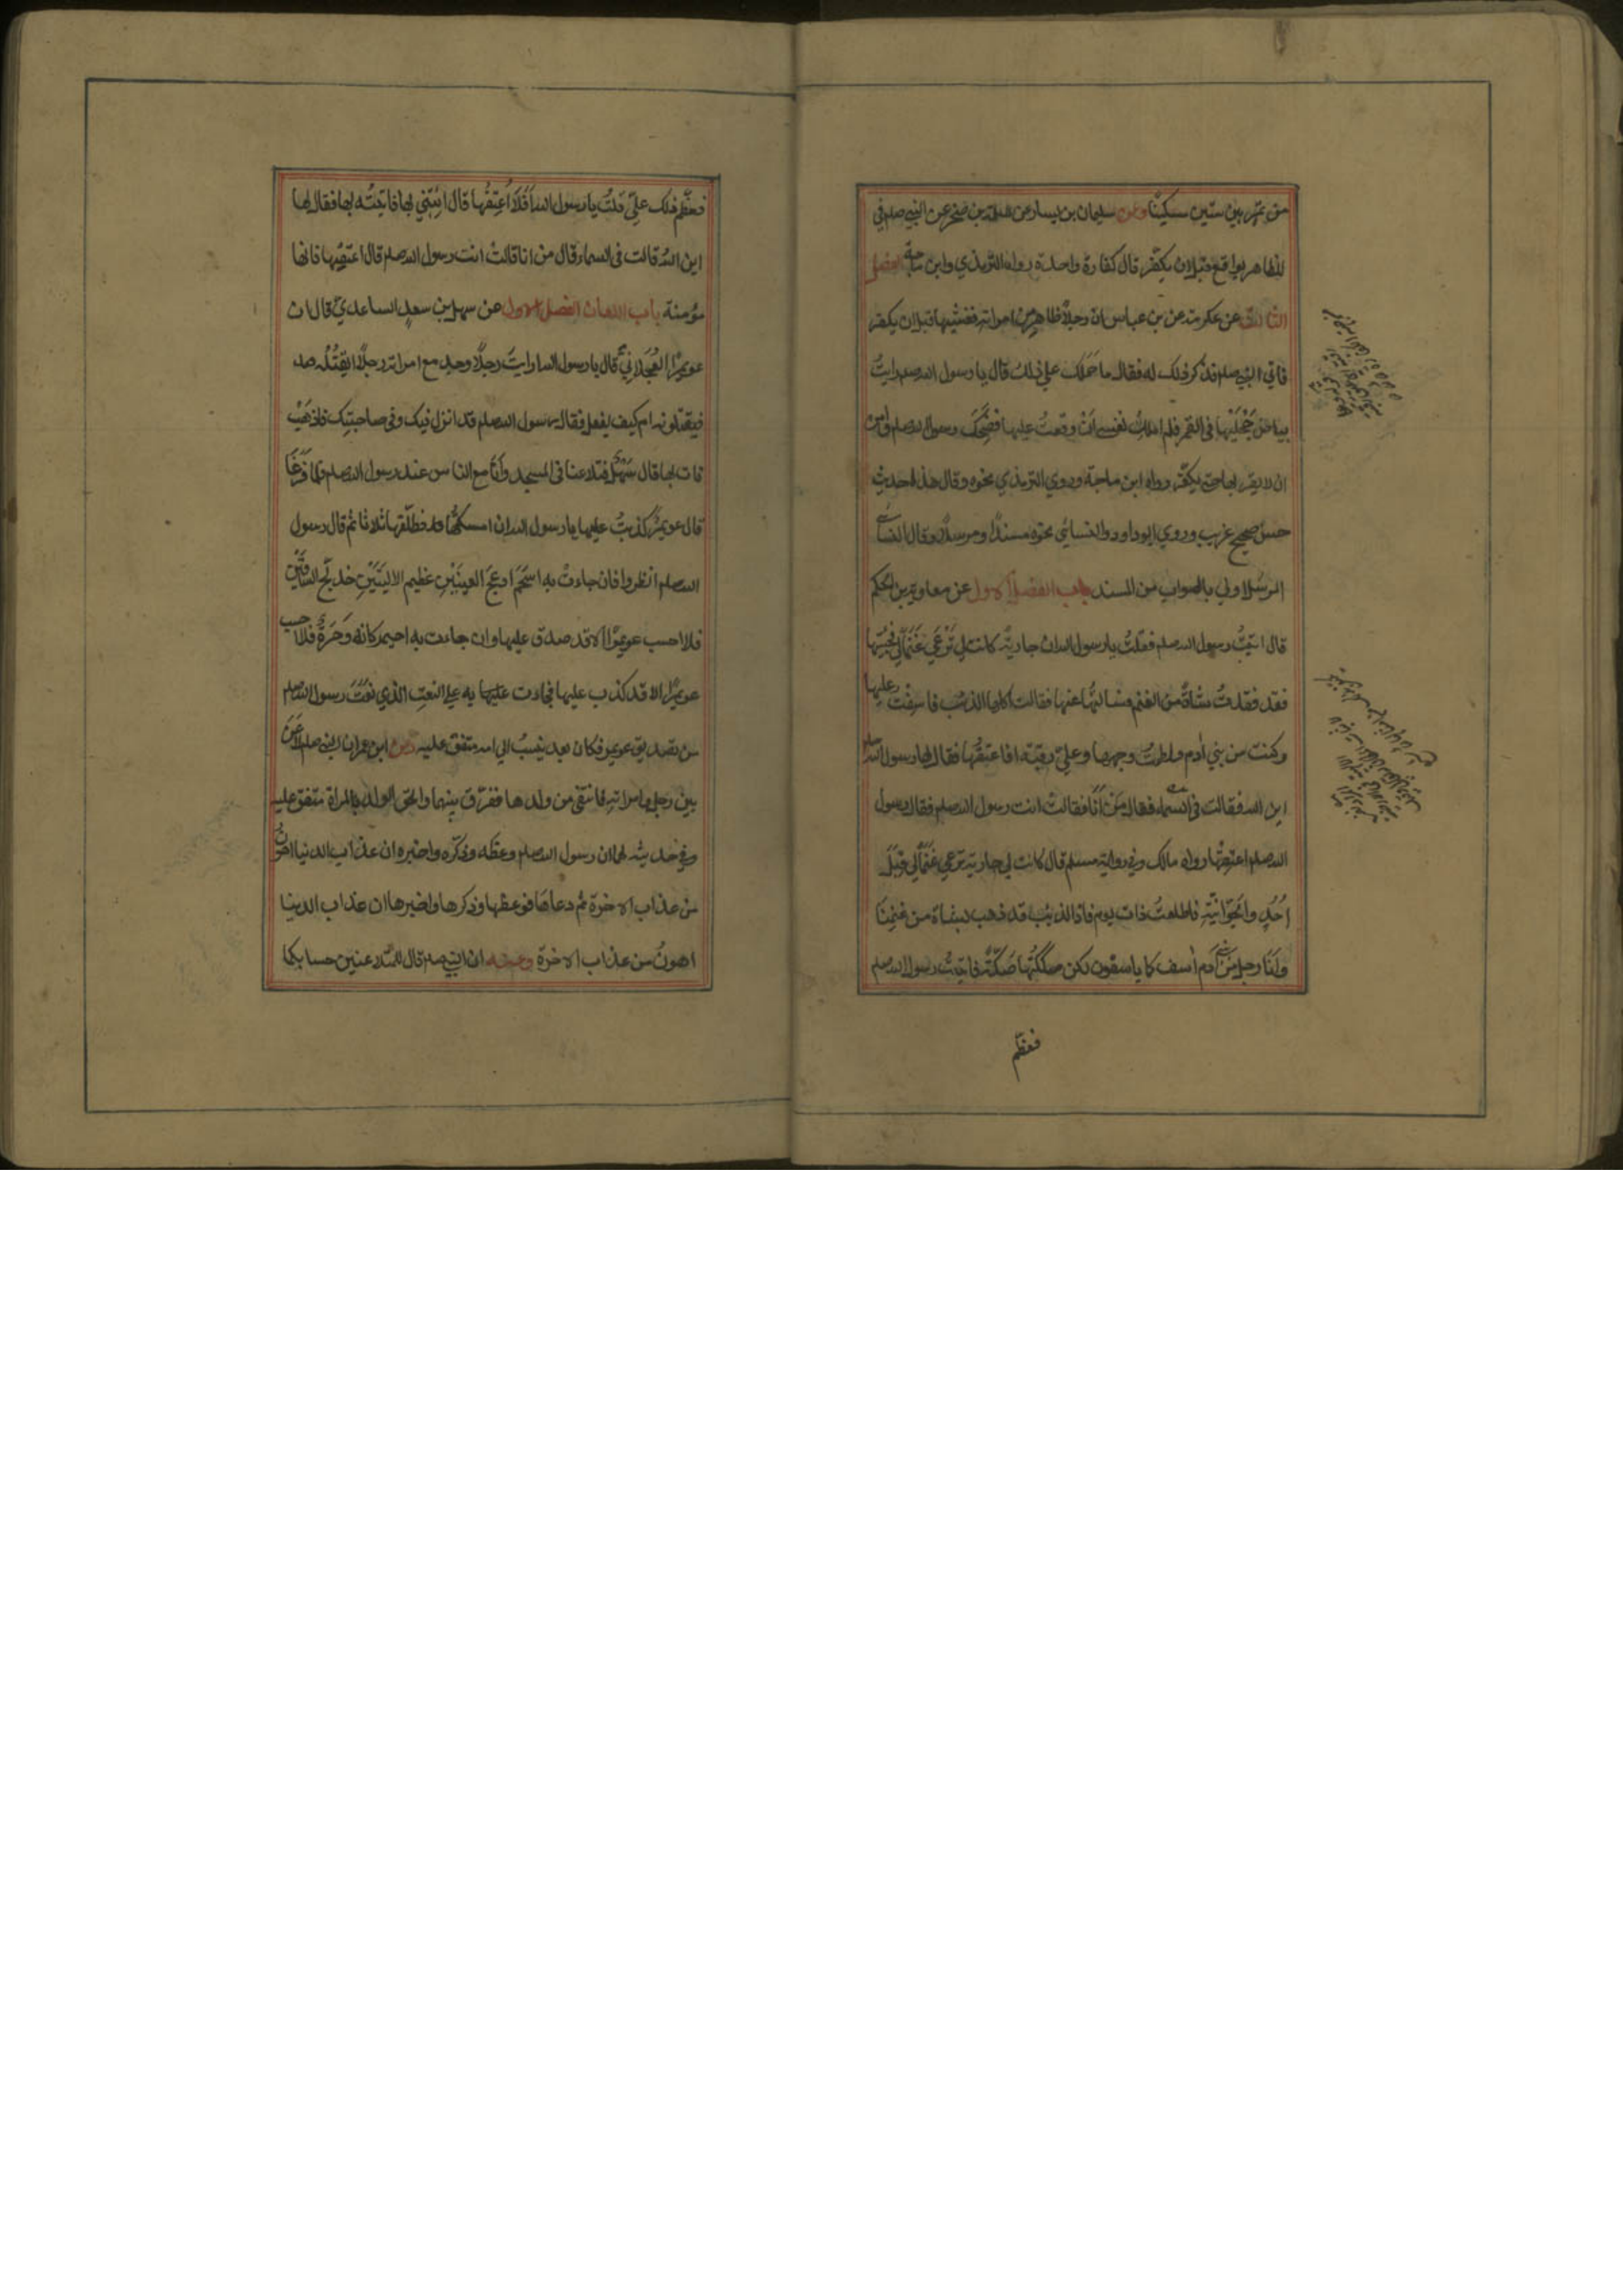 من تمر بين ستين مسكينا وعن سليمان بن يسار عن سلمة بن صخر عن النبي صلم في
المظاهر يواقع قبل ان يكفر قال كفارة واحدة رواه الترمذي وابن ماجة الفصل
الثالث عن عكرمة عن بن عباس ان رجلاً ظاهر من امراته فغشيها قبل ان يكفر
فاتي النبي صلم فذكر ذلك له فقال ما حَمَلَك علي ذلك قال يا رسول الله صلم رايتُ
بياض حَجْلَيْها في القمر فلم املك نفسي انْ وقعتُ عليها فضَحِكَ رسول الله صلم وامره
ان لا يقربها حتي يكفّر رواه ابن ماجة وروي الترمذي نحوه وقال هذا حديث
حسن صحيح غريب وروي ابوداود والنسائي نحوه مسنداً ومرسلاً وقال النسائي
المرسل اولي بالصواب من المسند باب الفصل الاول عن معاوية بن الحكم
قال اتيتُ رسول الله صلم فقلتُ يا رسول الله ان جارية كانت لي تَرْعَي غَنَمًا لي فجئتها
وقد فقدتُ شاةً من الغنم فسالتُها عنها فقالت اكلها الذئب فاسِفْتُ عليها
وكنت من بني ادم فلطمتُ وجهها وعليّ رقبة افاعتقُها فقال لها رسول الله صلم
اين الله فقالت في السماء فقال مَنْ اَنَا فقالت انت رسول الله صلم فقال رسول
الله صلم اعتِقْها رواه مالك وفي رواية مسلم قال كانت لي جارية ترعي غَنَمًا لي قِبَلَ
اُحُدٍ والجَوّانيّةِ فاطلعتُ ذات يوم فاذا الذئب قد ذهب بشاة من غنمِنَا
وانَا رجل من بني آدم آسف كما ياسفون لكن صككتُها صَكّةً فاتيتُ رسول الله صلم
فعظّم
فعظّم ذلك عليّ قلتُ يا رسول الله اَفَلَا اُعتِقُها قال ائتِني بها فاتيتُه بها فقال لها
اين اللهُ قالت في السماء قال من انا قالتْ انت رسول الله صلم قال اعتِقْها فانها
مؤمنة باب اللعان الفصل الاول عن سهل بن سعدٍ الساعدي قال ان
عويمرًا العَجلانيّ قال يا رسول الله ارايتَ رجلاً وجد مع امراته رجلاً ايقتُلُه
فيقتلونه ام كيف يفعل فقال رسول الله صلم قد انزل فيك وفي صاحبتِك فاذهَبْ
فات بها قال سَهْلٌ فتلاعنا في المسجد وانَا مع الناس عند رسول الله صلم فلما فَرَغَا
قال عويمرٌ كذبتُ عليها يا رسول الله ان امسكتُها فطلّقها ثلاثا ثم قال رسول
الله صلم انظروا فان جاءتْ به اسحَمَ ادعَجَ العينَيْنِ عظيم الاليَتَيْنِ خدَلَّجَ الساقَيْن
فلا احسب عويمرًا الا قد صدق عليها وان جاءت به احيمر كانه وَحَرَةٌ فلا احسب
عويمرًا الا قد كذب عليها فجاءت به علي النعتِ الذي نعَتَ رسول الله صلم
من تصديق عويمر فكان بعد ينسبُ الي امه متفق عليه وعن ابن عمر ان النبي صلم لاعَنَ
بين رجل وامراتِه فانتفي من ولدها ففرّق بينهما والحق الولد بالمراة متفق عليه
وفي حديثه لهما ان رسول الله صلم وعظه وذكّره واخبره ان عذاب الدنيا اهون
من عذاب الاخرة ثم دعاها فوعظها وذكرها واخبرها ان عذاب الدنيا
اهونُ من عذاب الاخرة وعنه ان النبي صلم قال للمتلاعنين حسابكما